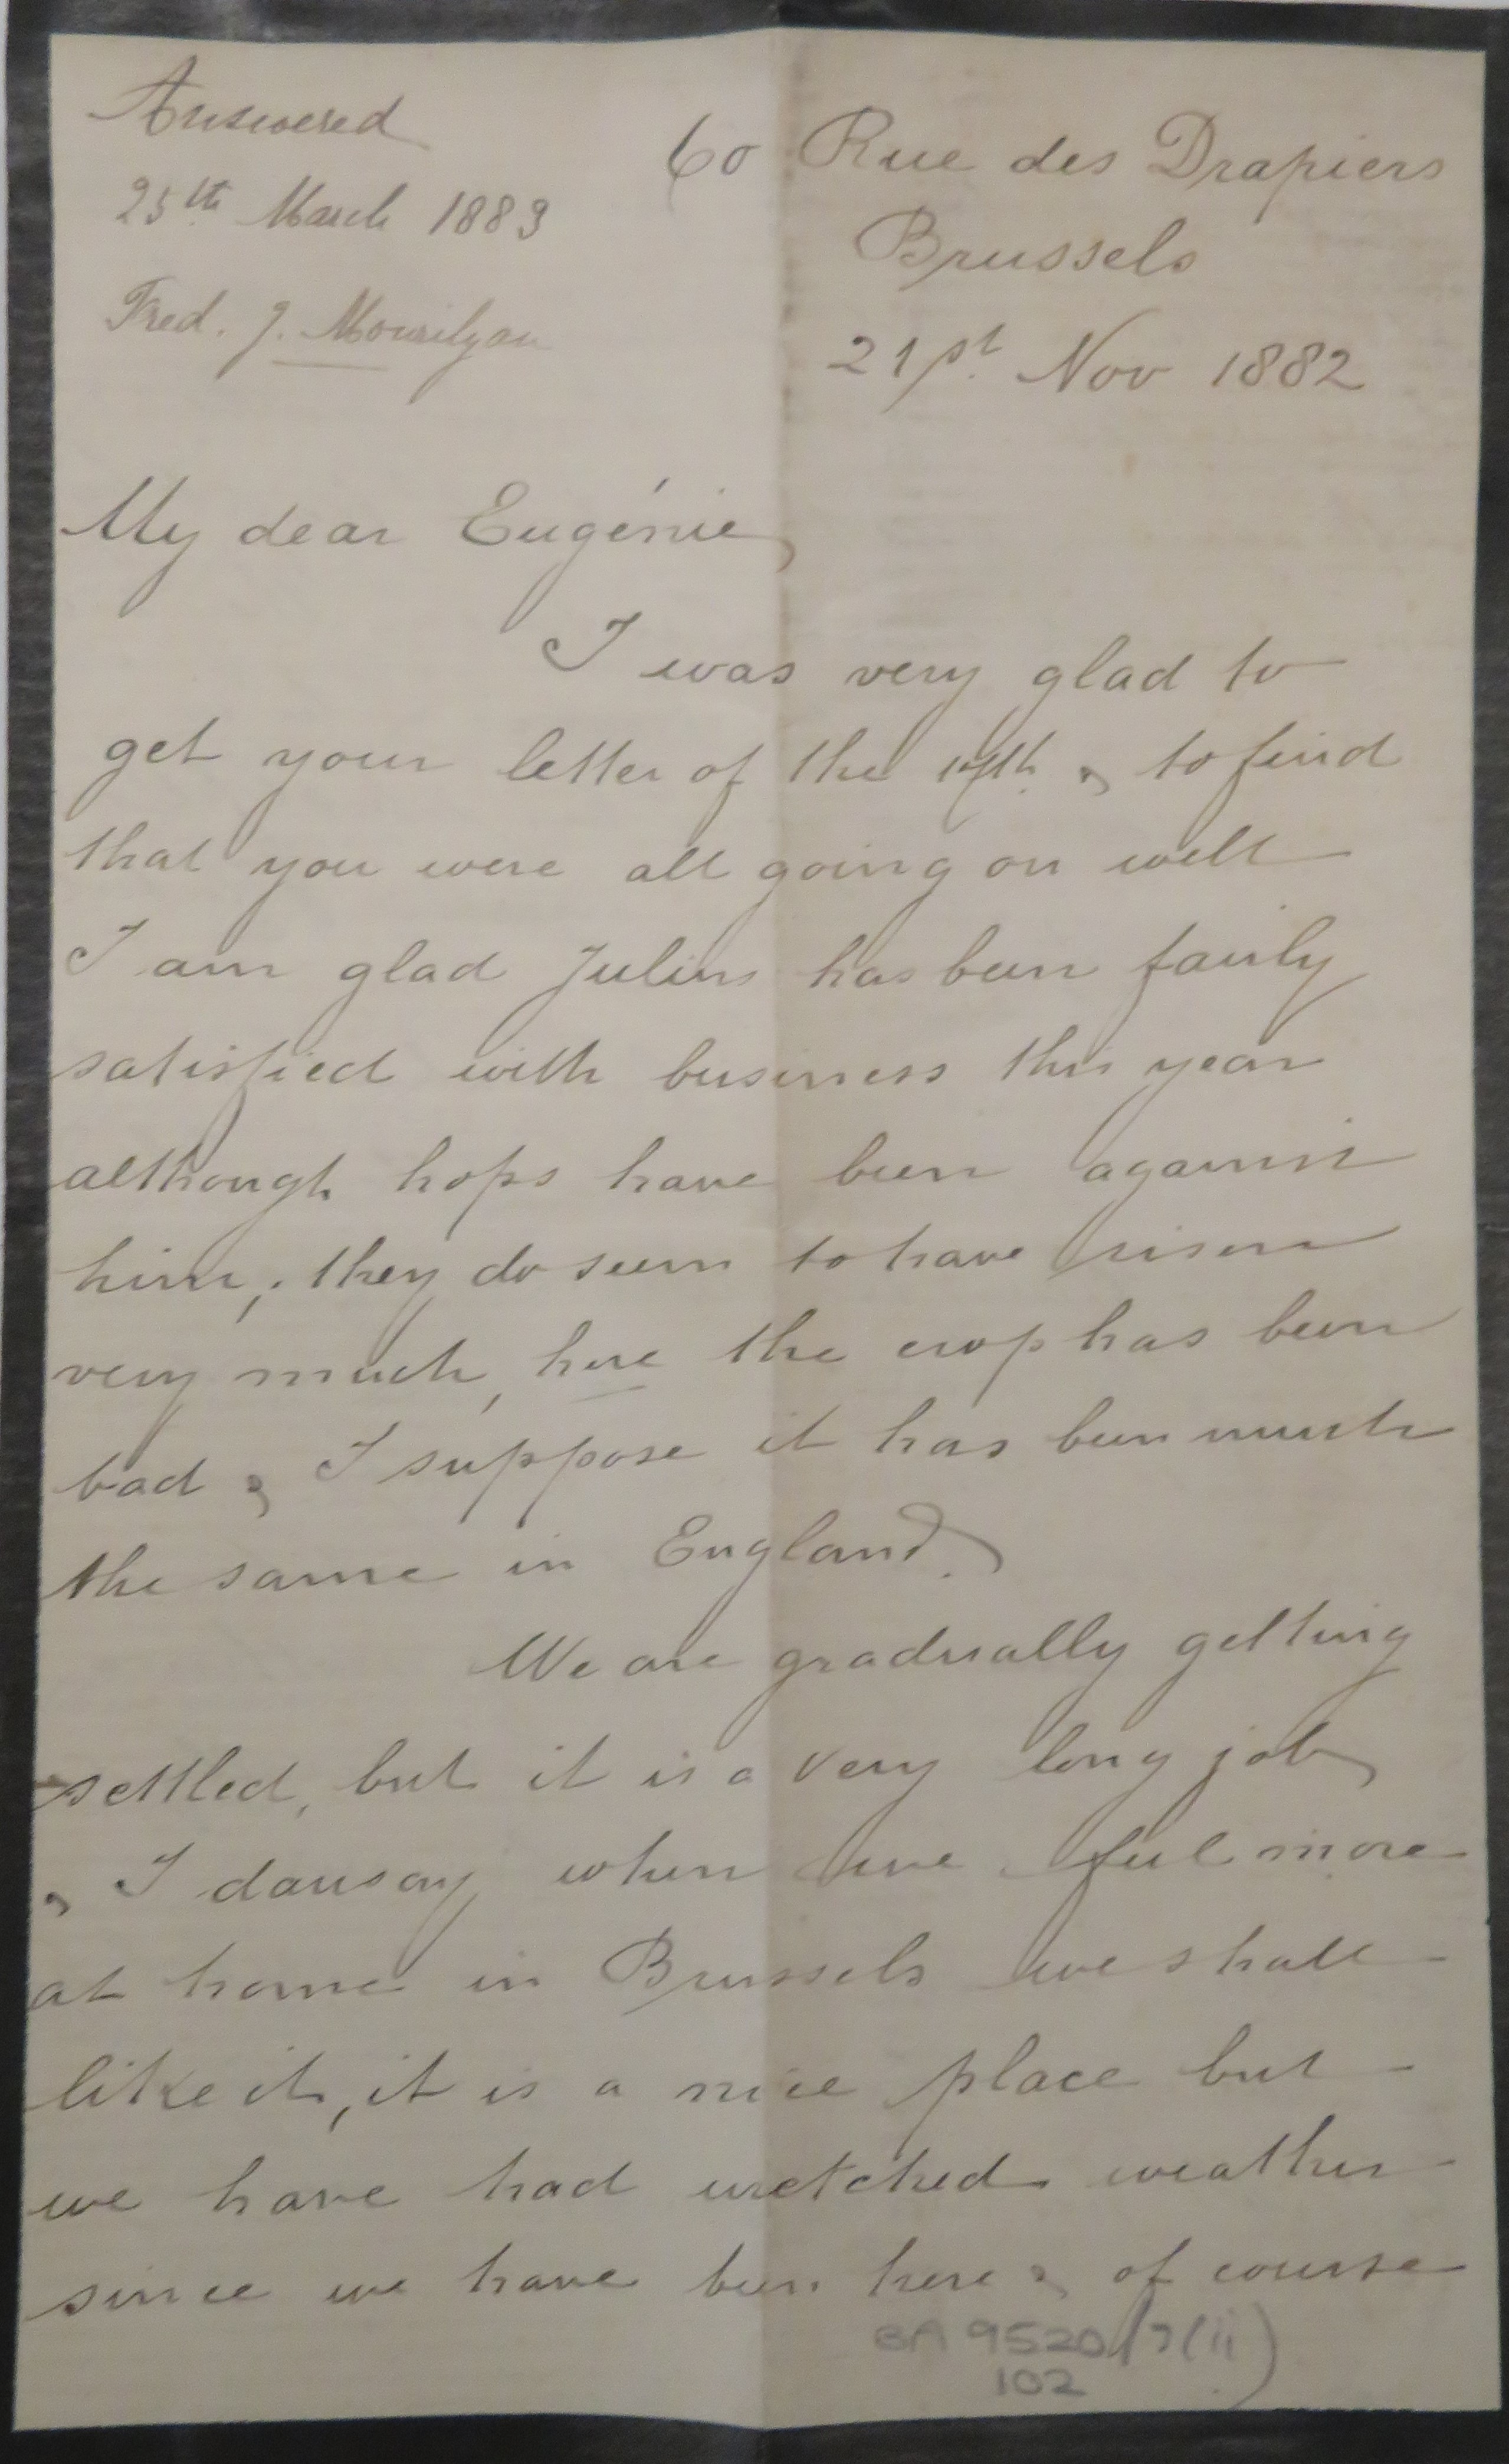 Answered
25th March 1883
Fred. J. Mourilyan
60 Rue des Drapiers
Brussels
21st Nov 1882
My dear Eugénie,
I was very glad to
get your letter of the & to find
that you were all going on well
I am glad Julius has been fairly
satisfied with business this year
although hops have been against
him, they do seem to have risen
very much, here the crop has been
bad & I suppose it has been much
the same in England.
We are gradually getting
settled, but it is a very long job
& I daresay when we feel more
at home in Brussels we shall
like it, it is a nice place but
we have had wretched weather
since we have been here & of course
BA 9520/7(ii)
102